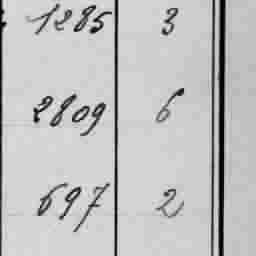 1285 3
2809 6
697 2